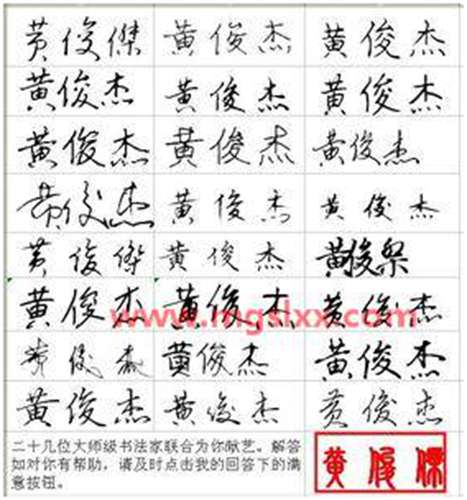 黄俊傑 黄俊杰 黄俊杰
黄俊杰 黄俊杰 黄俊杰
黄俊杰 黄俊杰 黄俊杰
黄俊杰 黄俊杰 黄俊杰
黄俊傑 黄俊杰 黄俊
黄俊杰 黄俊杰 黄俊杰
www.mgslxx.com
黄俊杰 黄俊杰 黄俊杰
黄俊杰 黄俊杰 黄俊杰
二十几位大师级书法家联合为你献艺。解答
如对你有帮助，请及时点击我的回答下的满
意按钮。
黄俊傑